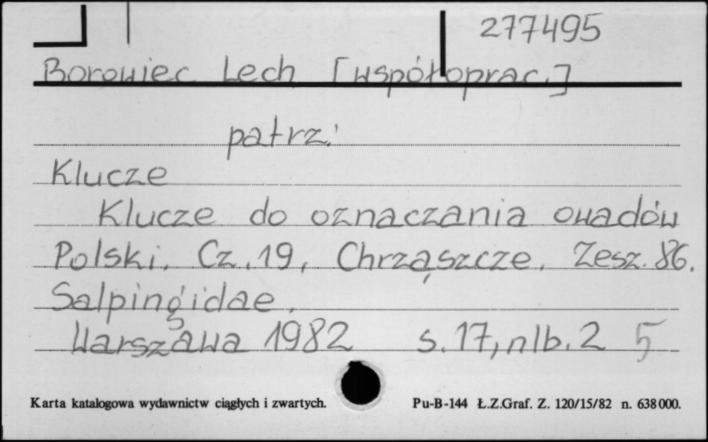 277495
Borowiec Lech [współoprac.]
patrz:
Klucze
Klucze do oznaczania owadów
Polski. Cz. 19, Chrząszcze. Zesz. 86.
Salpingidae.
Warszawa 1982 s. 17, nlb. 2 5
Karta katalogowa wydawnictw ciągłych i zwartych. Pu-B-144 Ł.Z.Graf. Z. 120/15/82 n. 638000.